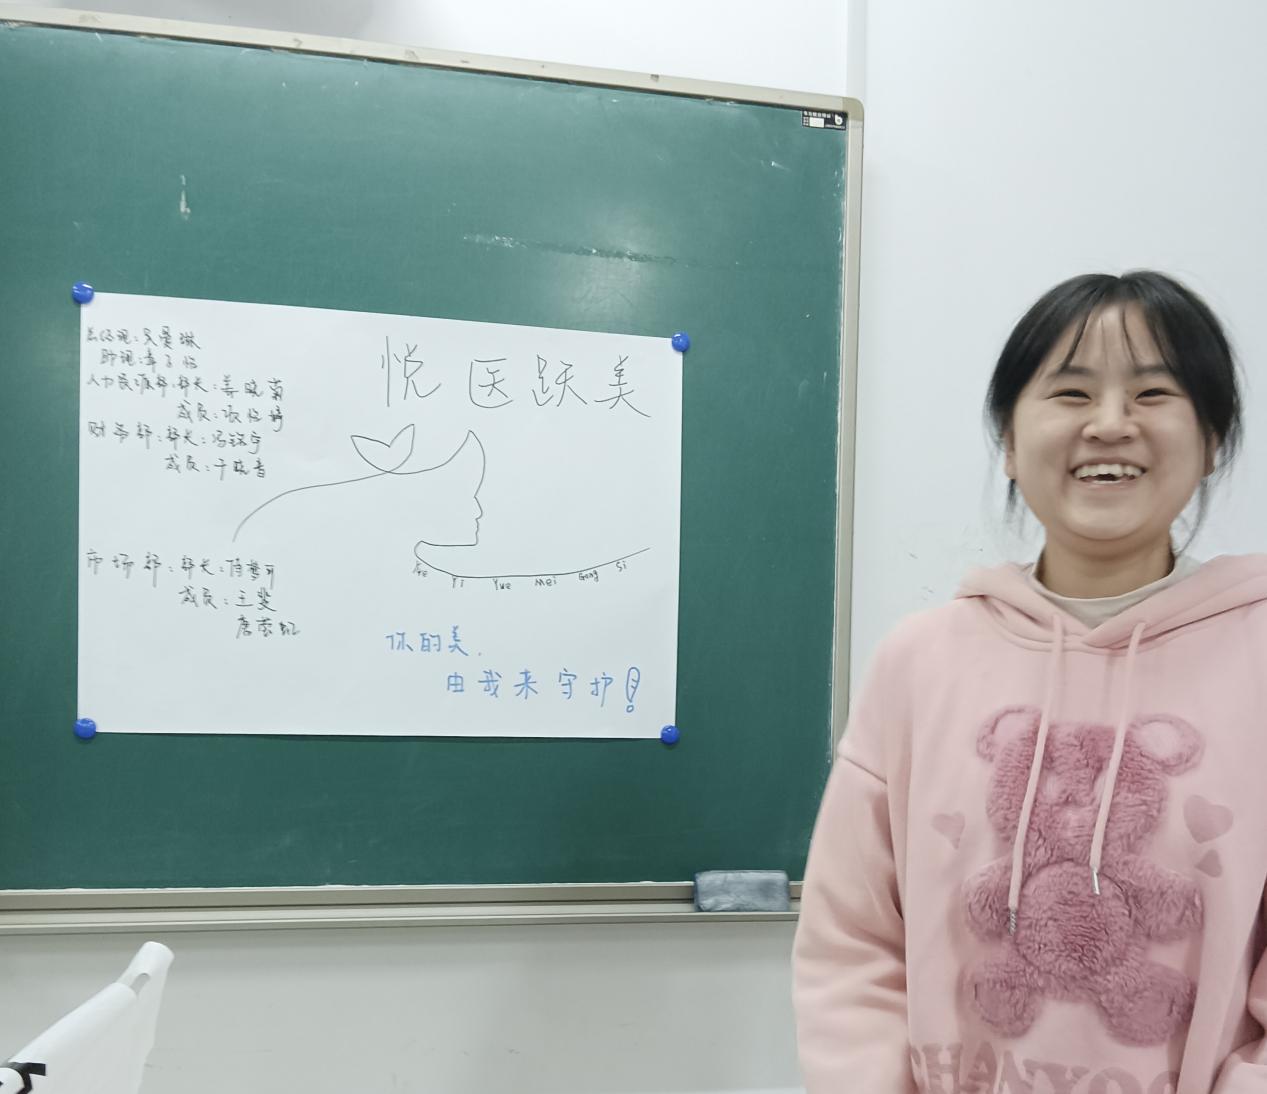 总经理：吴曼琳
助理：章子怡
人力资源部：部长：姜晓菊
成员：张怡婷
财务部：部长：冯锦宇
成员：于晓音
市场部：部长：陈梦可
成员：王斐
悦医跃美
Yi Yue Mei Gong Si
你的美，
由我来守护！